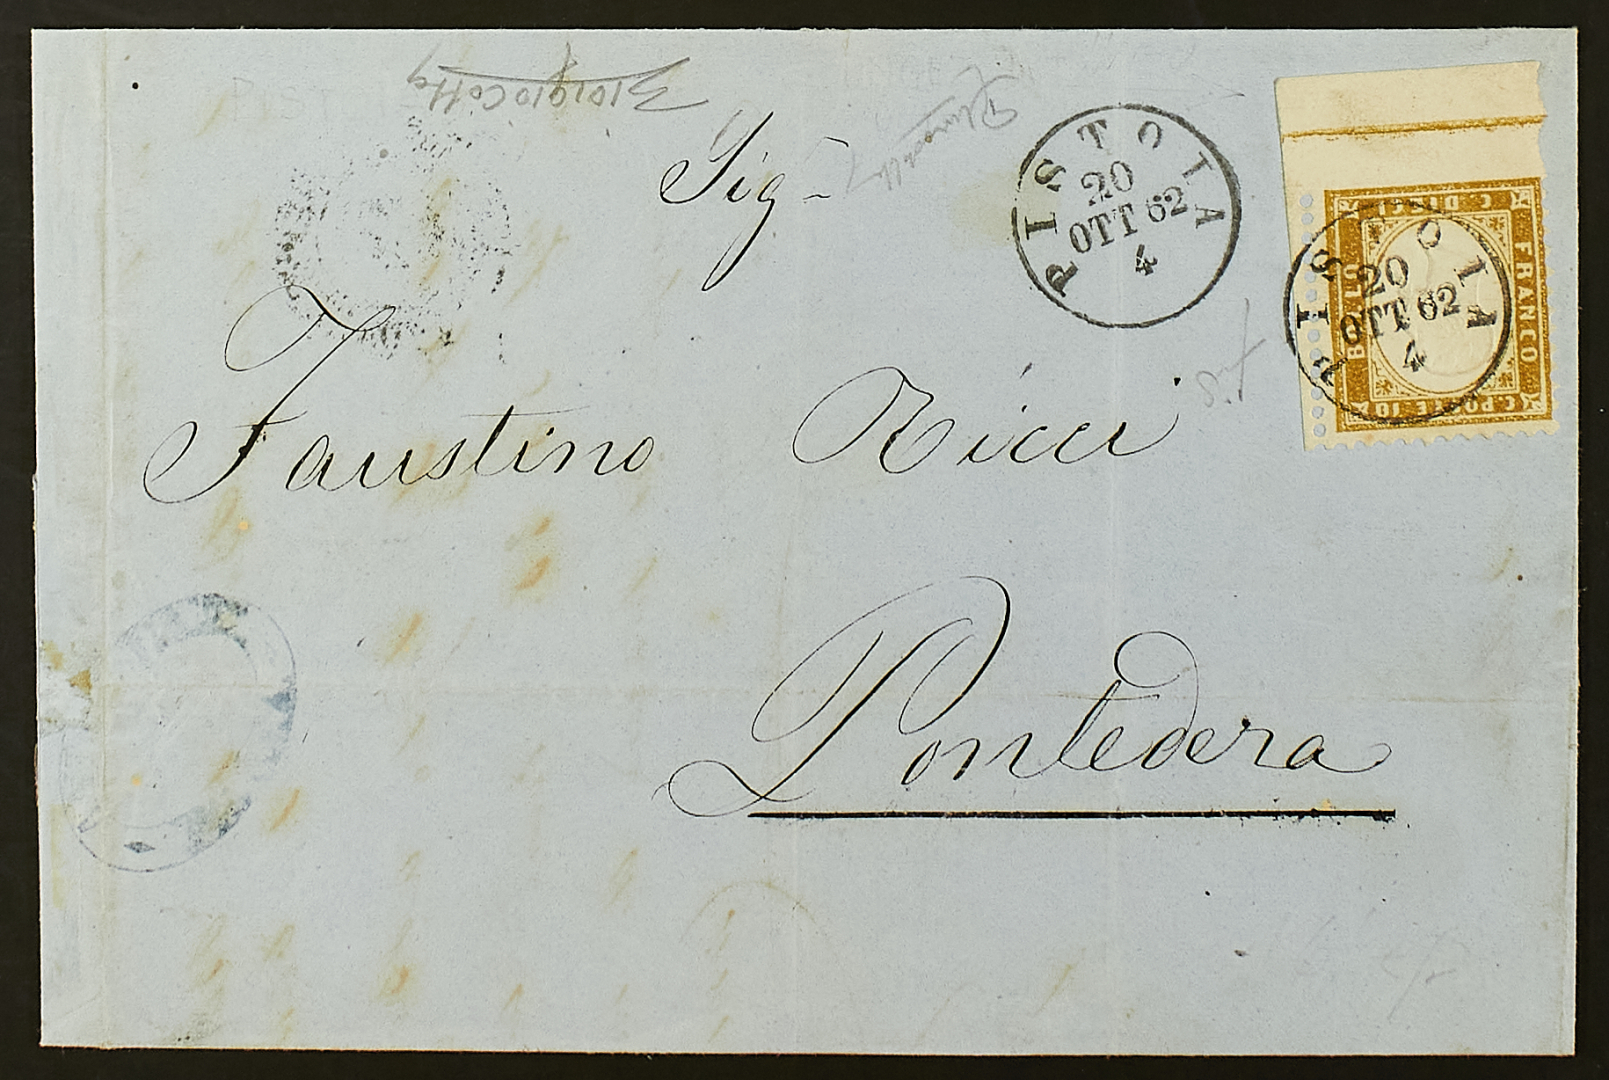 Giorgio Colla
Sig-
PISTOIA
20
OTT 62
4
PISTOIA
20
OTT 62
4
FRANCO
C. POSTE 10
BOLLO
C. DIECI
Faustino Ricci
Pontedera